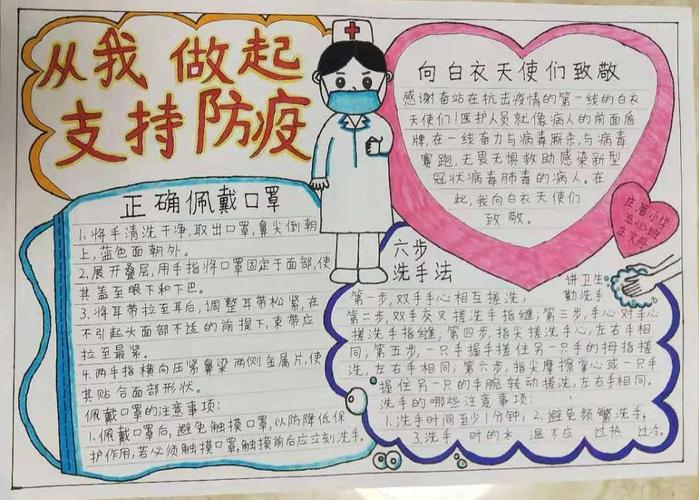 从我做起
支持防疫
向白衣天使们致敬
感谢奋站在抗击疫情的第一线的白衣
天使们！医护人员就像病人的前面盾
牌，在一线奋力与病毒厮杀，与病毒
赛跑，无畏无惧救助感染新型
冠状病毒肺毒的病人。在
此，我向白衣天使们
致敬。
小学
五(2)班
正确佩戴口罩
1.将手清洗干净，取出口罩，鼻尖倒朝
上，蓝色面朝外。
2.展开叠层，用手指将口罩固定于面部，使
其盖至眼下和下巴。
3.将耳带拉至耳后，调整耳带松紧，在
不引起头面部不适的前提下，束带应
拉至最紧。
4.两手指横向压紧鼻梁两侧金属片，使
其贴合面部形状。
佩戴口罩的注意事项：
1.佩戴口罩后，避免触摸口罩，以防降低保
护作用，若必须触摸口罩，触摸前后应立刻洗手。
六步
洗手法
讲卫生
勤洗手
第一步，双手手心相互搓洗；
第二步，双手交叉搓洗手指缝；第三步，手心对手心
搓洗手指缝，第四步，指尖搓洗手心，左右手相
同，第五步，一只手握手搓住另一只手的拇指搓
洗，左右手相同，第六步，指尖摩擦掌心或一只手
握住另一只的手腕转动搓洗，左右手相同。
洗手的哪些注意事项：
1.洗手时间至少1分钟；2.避免频繁洗手；
3.洗手 时的水 温不应 过热 过冷。